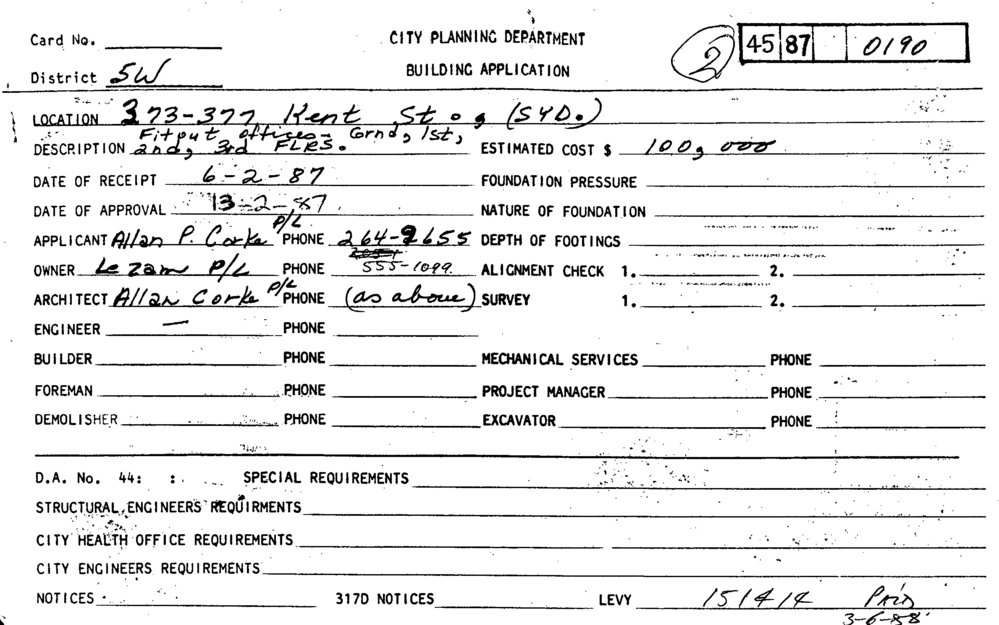 Card No.
CITY PLANNING DEPARTMENT
2
45 87 0190
District SW
BUILDING APPLICATION
LOCATION 373-377 Kent St., (SYD.)
Fitout offices - Grnd, 1st,
DESCRIPTION 2nd, 3rd FLRS.
ESTIMATED COST $ 100,000
DATE OF RECEIPT 6-2-87
FOUNDATION PRESSURE
DATE OF APPROVAL 13-2-87
NATURE OF FOUNDATION
APPLICANT Allan P. Corke P/L PHONE 264-2655 DEPTH OF FOOTINGS
OWNER Lezam P/L PHONE 555-1099 ALIGNMENT CHECK 1. 2.
ARCHITECT Allan Corke P/L PHONE (as above) SURVEY 1. 2.
ENGINEER — PHONE
BUILDER PHONE MECHANICAL SERVICES PHONE
FOREMAN PHONE PROJECT MANAGER PHONE
DEMOLISHER PHONE EXCAVATOR PHONE
D.A. No. 44: : SPECIAL REQUIREMENTS
STRUCTURAL ENGINEERS REQUIRMENTS
CITY HEALTH OFFICE REQUIREMENTS
CITY ENGINEERS REQUIREMENTS
NOTICES 317D NOTICES LEVY 151414 PAID
3-6-88